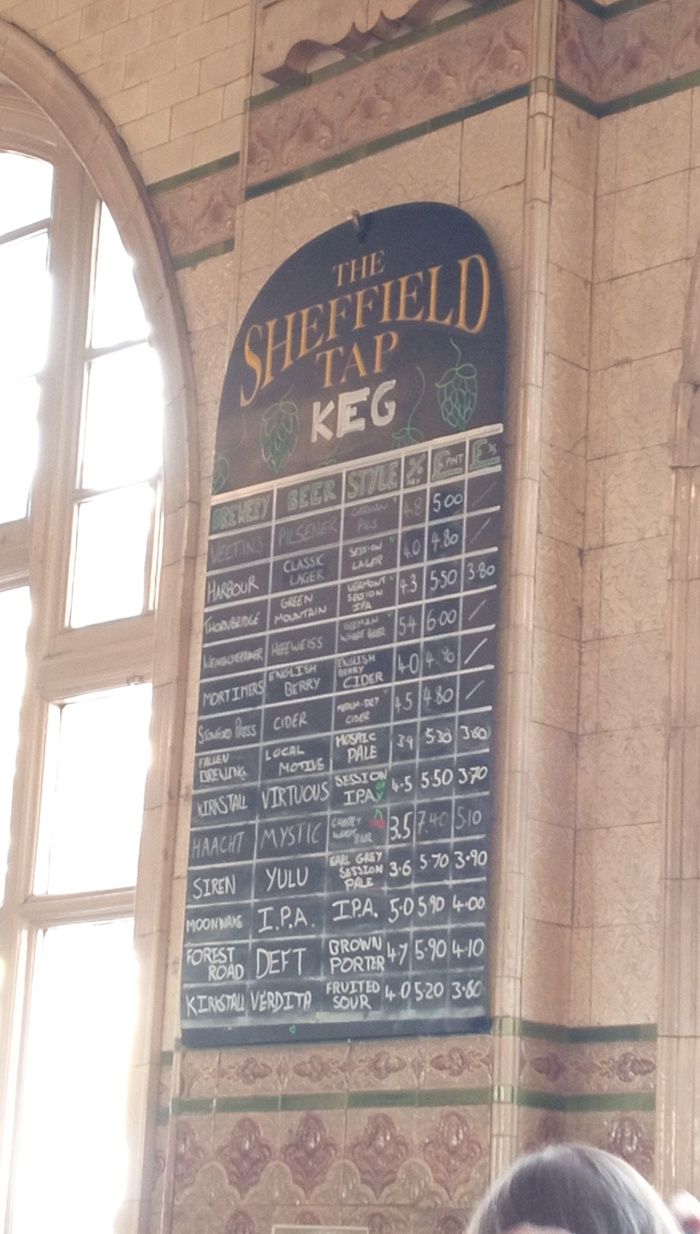 THE
SHEFFIELD
TAP
KEG
BREWERY BEER STYLE % £ PINT £ ⅔
VELTINS PILSENER GERMAN PILS 4.8 5.00 /
HARBOUR CLASSIC LAGER SESSION LAGER 4.0 4.80 /
THORNBRIDGE GREEN MOUNTAIN VERMONT SESSION IPA 4.3 5.50 3.80
HEFEWEISS GERMAN WHEAT BEER 5.4 6.00 /
MORTIMERS ENGLISH BERRY ENGLISH BERRY CIDER 4.0 /
STOWFORD PRESS CIDER MEDIUM-DRY CIDER 4.5 4.80 /
FALLEN BREWING LOCAL MOTIVE MOSAIC PALE 3.9 5.30 3.60
KIRKSTALL VIRTUOUS SESSION IPA 4.5 5.50 3.70
HAACHT MYSTIC CHERRY WHEAT BEER 3.5 7.40 5.10
SIREN YULU EARL GREY SESSION PALE 3.6 5.70 3.90
MOONWAKE I.P.A. I.P.A. 5.0 5.90 4.00
FOREST ROAD DEFT BROWN PORTER 4.7 5.90 4.10
KIRKSTALL VERDITA FRUITED SOUR 4.0 5.20 3.60